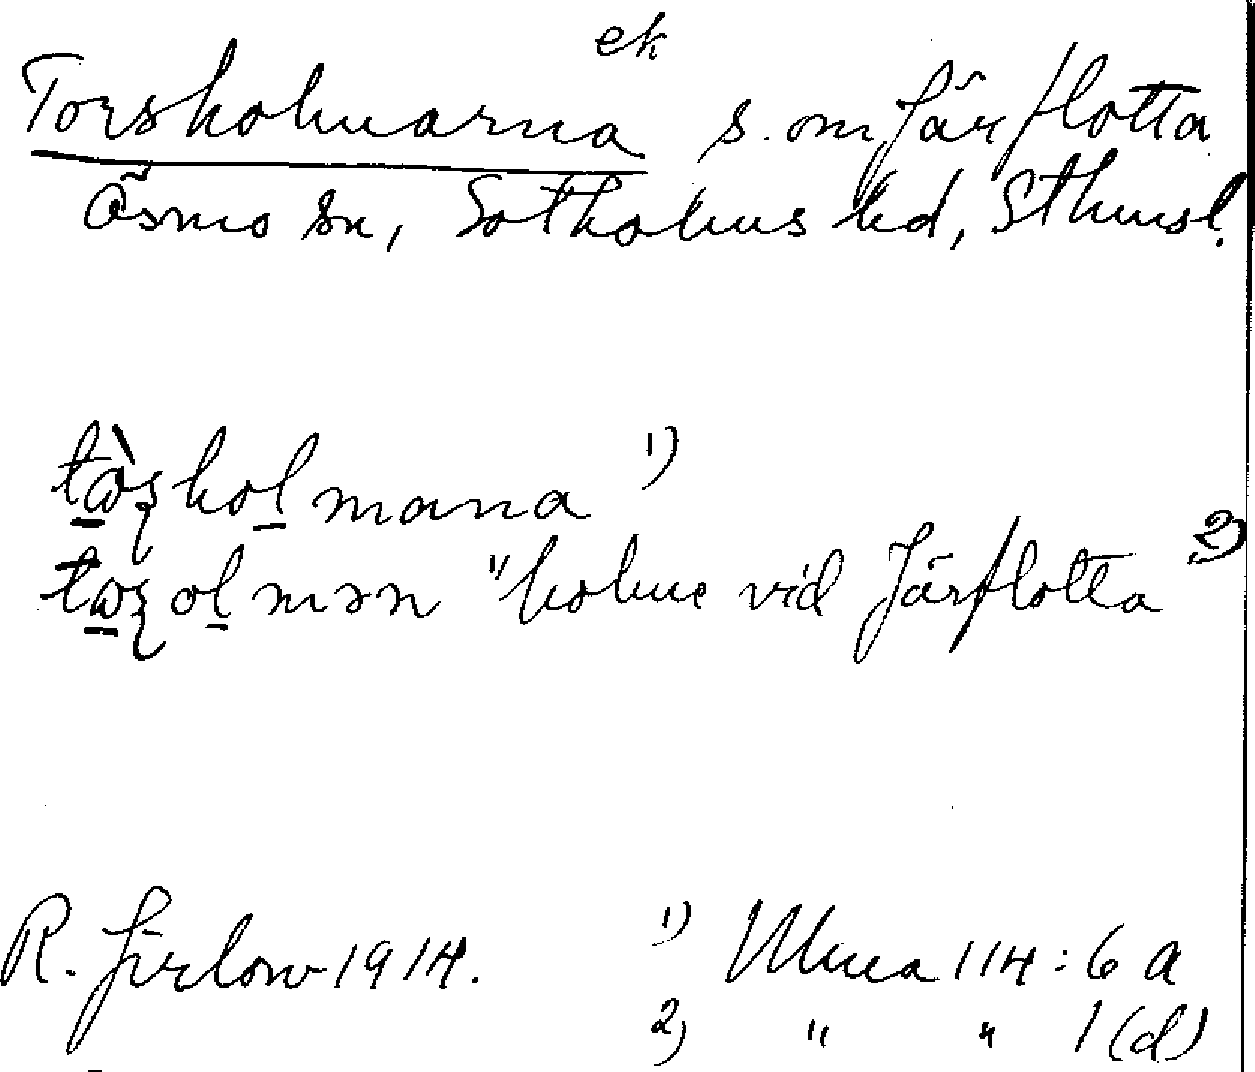 ek
Torsholmarna s. om Järflotta
Ösmo sn, Sotholms hd, Sthmsl.
tɷ̀ʂholmana 1)
tɷʂolmən "holme vid Järflotta 2)
R. Jirlow 1914. 1) Muea 114:6 A
2) " " 1 (d)